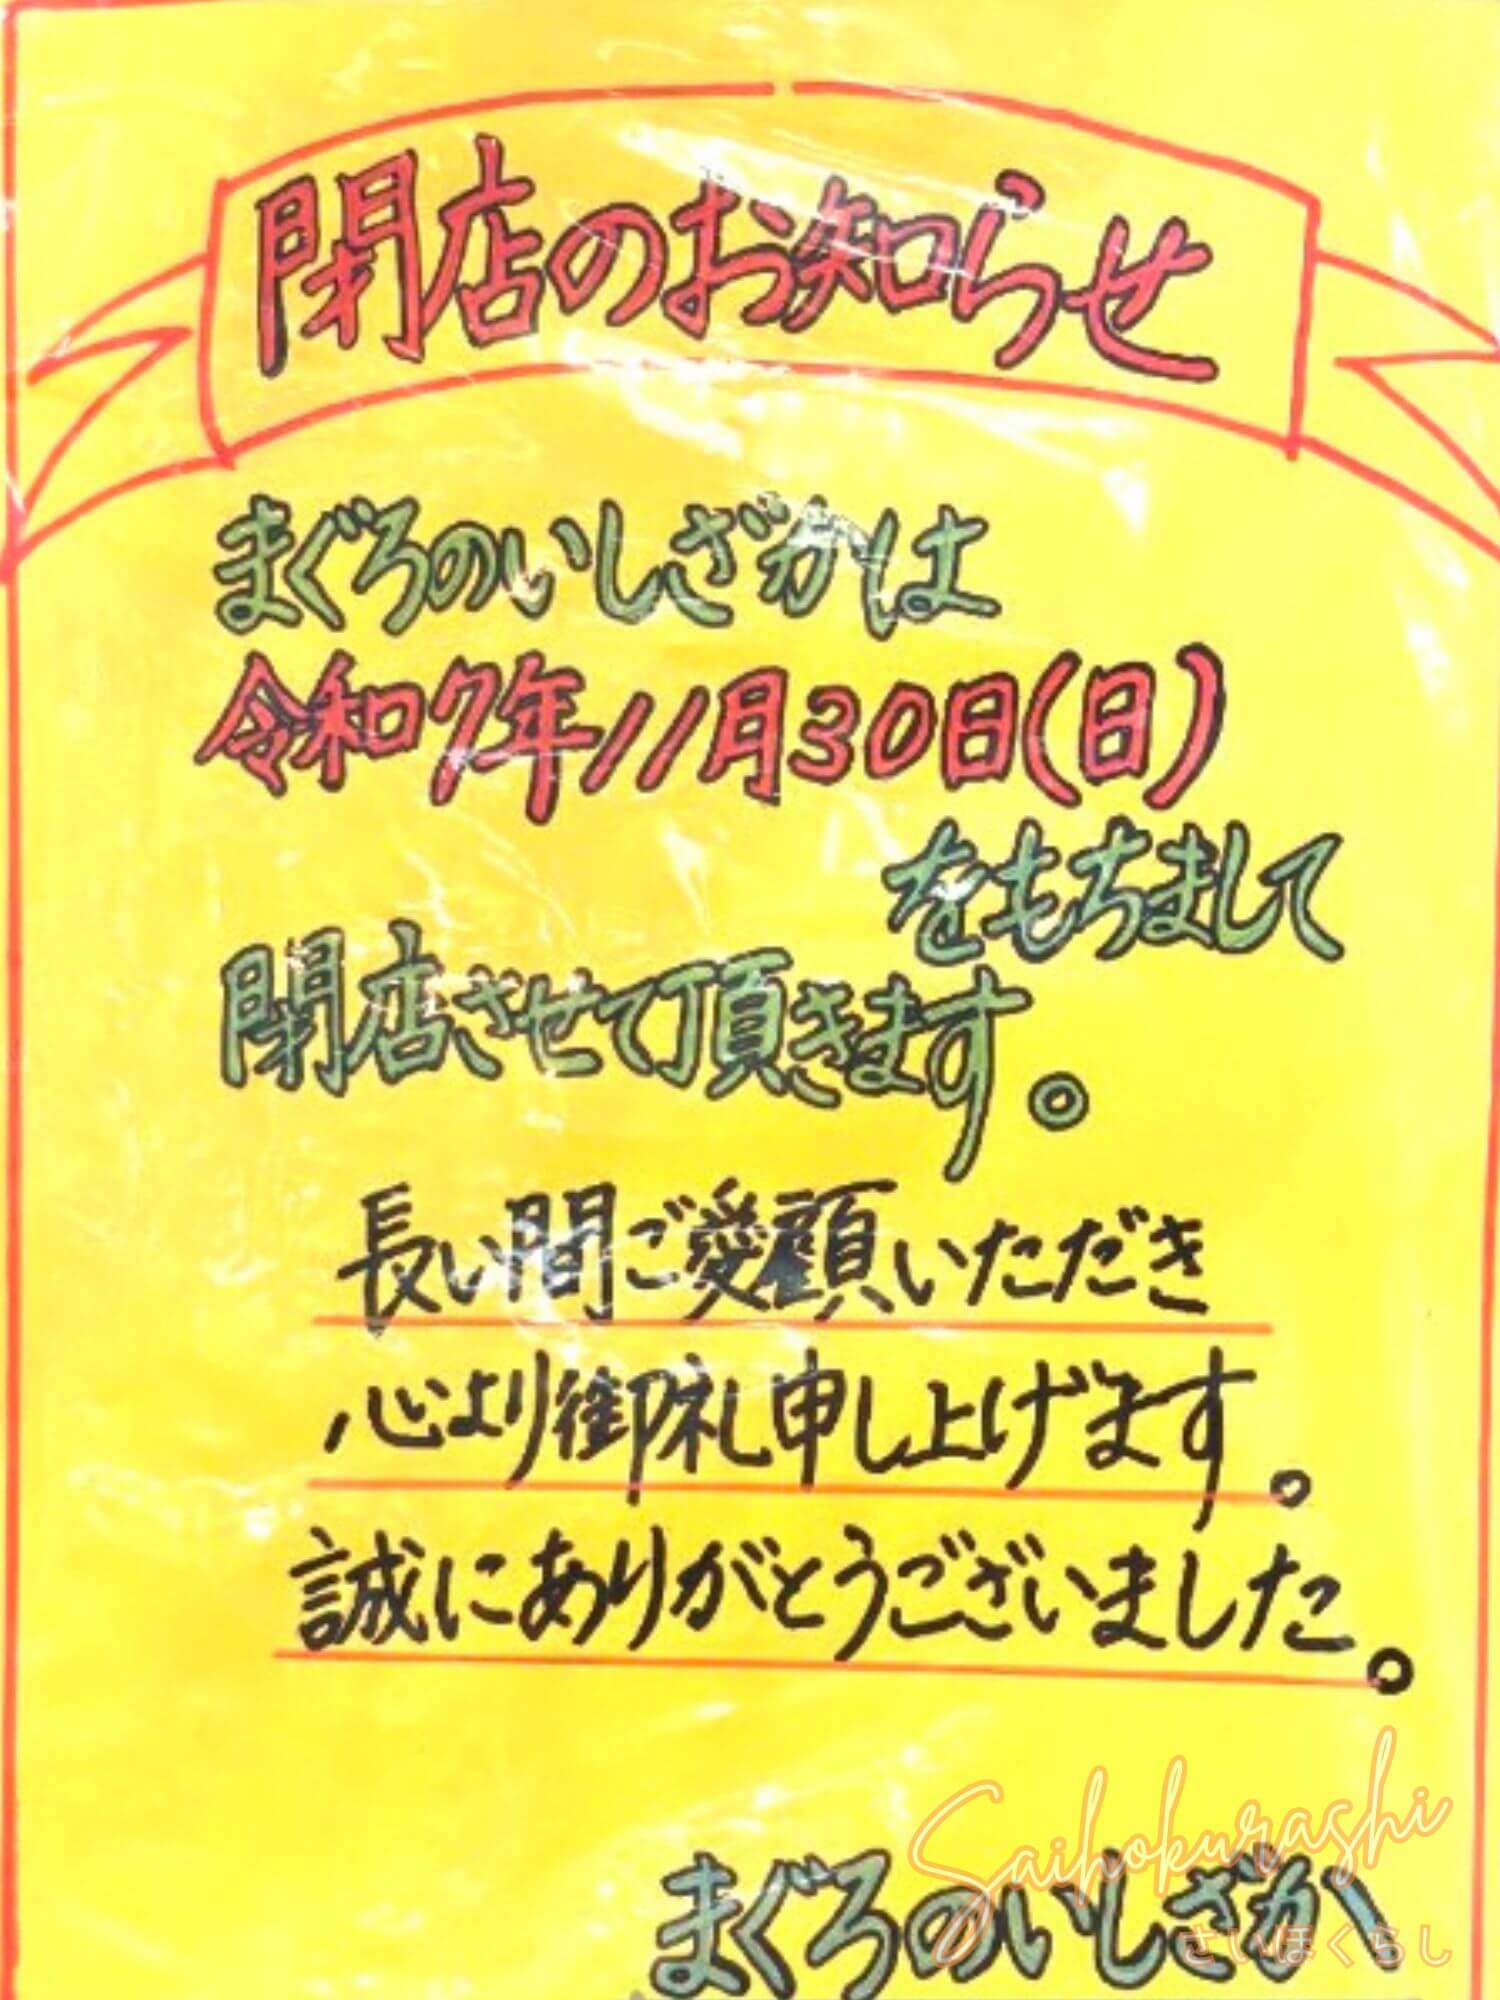 閉店のお知らせ
まぐろのいしざかは
令和7年11月30日(日)
をもちまして
閉店させて頂きます。
長い間ご愛顧いただき
心より御礼申し上げます。
誠にありがとうございました。
Saihokurashi
まぐろのいしざか
さいほくらし